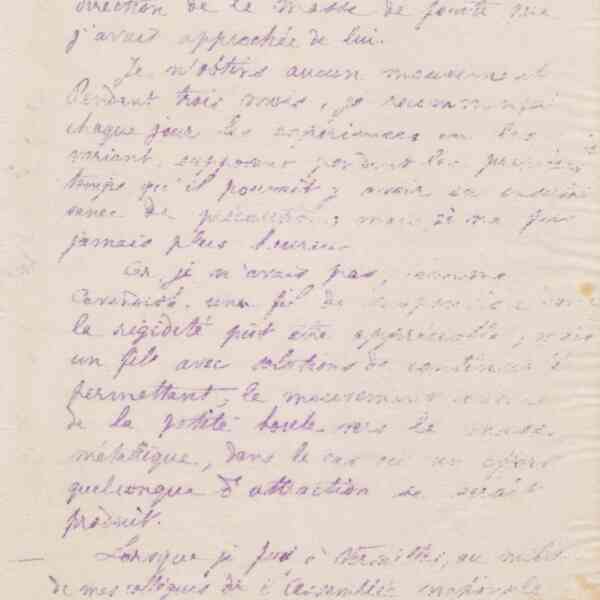 direction de la masse de fonte que
j'avais approchée de lui.
Je n'obtins aucun mouvement
Pendant trois mois, je recommençai
chaque jour les expériences en les
variant, supposant pendant les premiers
temps qu'il pouvait y avoir eu
de précautions; mais je ne fus
jamais plus heureux
Or je n'avais pas, comme
Cavendish, un fil de suspension dont
la rigidité pût être appréciable, mais
un fil avec solutions de continuité
permettant, le mouvement
de la petite boule vers la masse
métallique, dans le cas où un effort
quelconque d'attraction se serait
produit.
Lorsque je fus à Versailles, au milieu
de mes collègues de l'Assemblée nationale